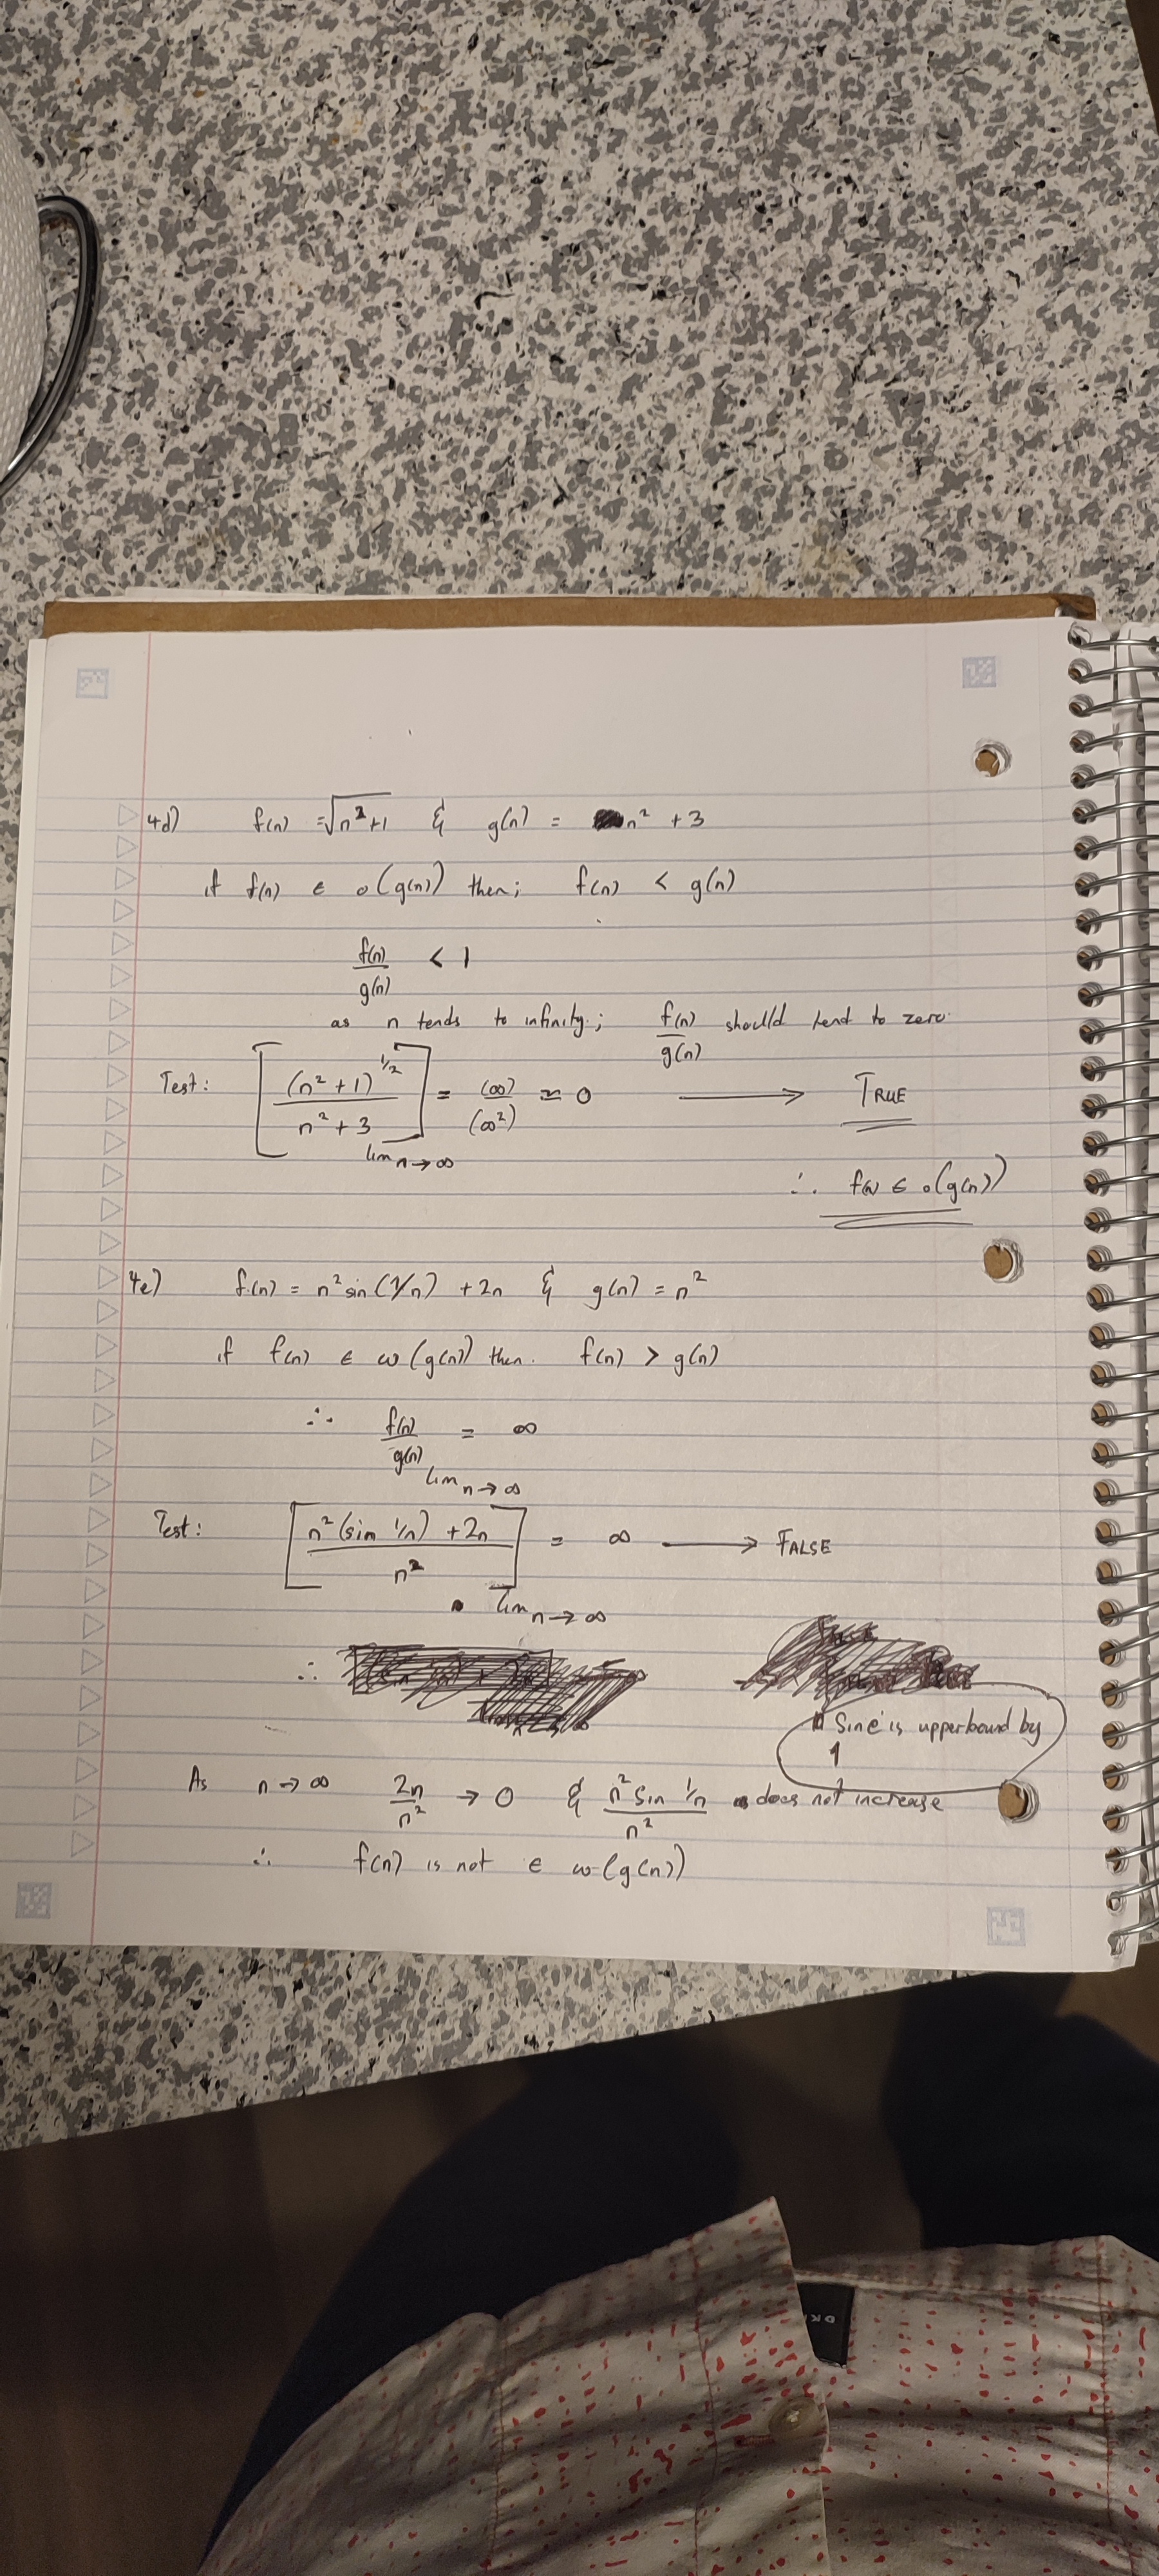 4d) f(n) = √n²+1 & g(n) = n² + 3
if f(n) ∈ o(g(n)) then; f(n) < g(n)
f(n)/g(n) < 1
as n tends to infinity; f(n)/g(n) should tend to zero.
Test: [(n² + 1)^1/2 / n² + 3] lim n→∞ = (∞)/(∞²) ≈ 0 → TRUE
∴ f(n) ∈ o(g(n))
4e) f(n) = n² sin(1/n) + 2n & g(n) = n²
if f(n) ∈ ω(g(n)) then. f(n) > g(n)
∴ f(n)/g(n) lim n→∞ = ∞
Test: [n²(sin 1/n) + 2n / n²] lim n→∞ = ∞ → FALSE
∴
Sine is upperbound by
1
As n→∞ 2n/n² → 0 & n² sin 1/n / n² does not increase
∴ f(n) is not ∈ ω(g(n))